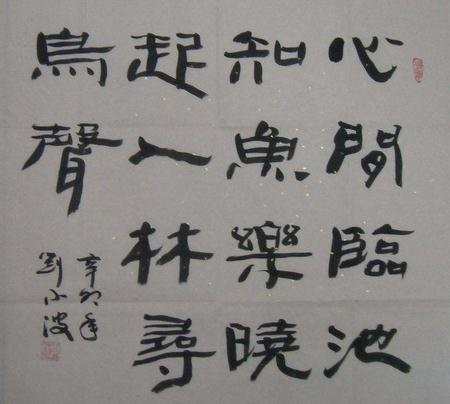 心閒臨池
知魚樂曉
起入林尋
鳥聲
辛卯年
劉小波